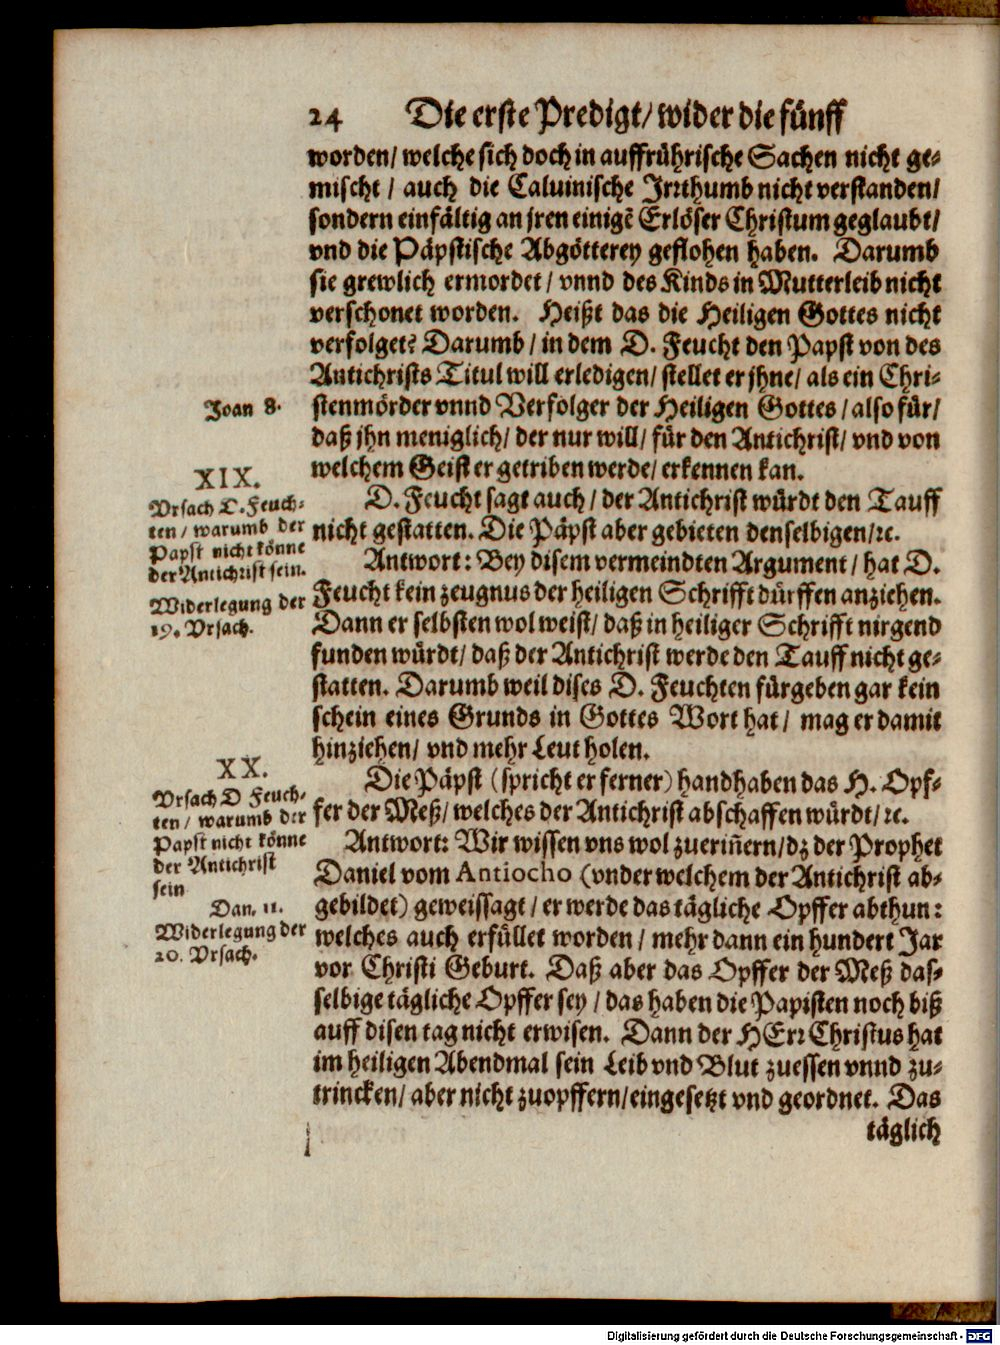 24 Die erste Predigt/ wider die fünff
worden/ welche sich doch in auffrührische Sachen nicht ge-
mischt / auch die Caluinische Irrthumb nicht verstanden/
sondern einfältig an jren einigẽ Erlöser Christum geglaubt/
vnd die Päpstische Abgötterey geflohen haben. Darumb
sie grewlich ermordet / vnnd des Kinds in Mutterleib nicht
verschonet worden. Heißt das die Heiligen Gottes nicht
verfolget? Darumb / in dem D. Feucht den Papst von des
Antichrists Titul will erledigen/ stellet er jhne/ als ein Chri-
stenmörder vnnd Verfolger der Heiligen Gottes / also für/
daß jhn meniglich/ der nur will/ für den Antichrist/ vnd von
welchem Geist er getriben werde/ erkennen kan.
Joan 8.
D. Feucht sagt auch / der Antichrist würdt den Tauff
nicht gestatten. Die Päpst aber gebieten denselbigen/ ꝛc.
Antwort: Bey disem vermeindten Argument / hat D.
Feucht kein zeugnus der heiligen Schrifft dürffen anziehen.
Dann er selbsten wol weist/ daß in heiliger Schrifft nirgend
funden würdt/ daß der Antichrist werde den Tauff nicht ge-
statten. Darumb weil dises D. Feuchten fürgeben gar kein
schein eines Grunds in Gottes Wort hat / mag er damit
hinziehen/ vnd mehr Leut holen.
XIX.
Vrsach D. Feuch-
ten / warumb der
Papst nicht könne
der Antichrist sein.
Widerlegung der
19. Vrsach.
Die Päpst (spricht er ferner) handhaben das H. Opf-
fer der Meß/ welches der Antichrist abschaffen würdt/ ꝛc.
Antwort: Wir wissen vns wol zuerin̄ern/ dz der Prophet
Daniel vom Antiocho (vnder welchem der Antichrist ab-
gebildet) geweissagt / er werde das tägliche Opffer abthun:
welches auch erfüllet worden / mehr dann ein hundert Jar
vor Christi Geburt. Daß aber das Opffer der Meß das-
selbige tägliche Opffer sey / das haben die Papisten noch biß
auff disen tag nicht erwisen. Dann der HErr Christus hat
im heiligen Abendmal sein Leib vnd Blut zuessen vnnd zu-
trincken/ aber nicht zuopffern/ eingesetzt vnd geordnet. Das
täglich
XX.
Vrsach D Feuch-
ten / warumb der
Papst nicht könne
der Antichrist
sein
Dan. 11.
Widerlegung der
20. Vrsach.
Digitalisierung gefördert durch die Deutsche Forschungsgemeinschaft - DFG